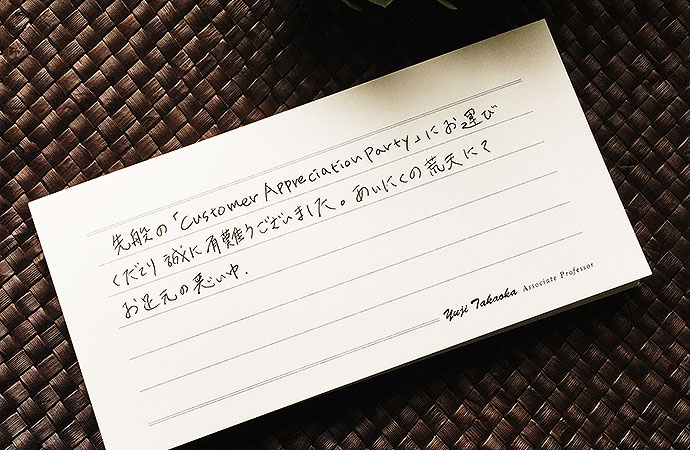 先般の「Customer Appreciation Party」にお運び
くださり誠に有難うございました。あいにくの荒天にて
お足元の悪い中、
Yuji Takaoka Associate Professor